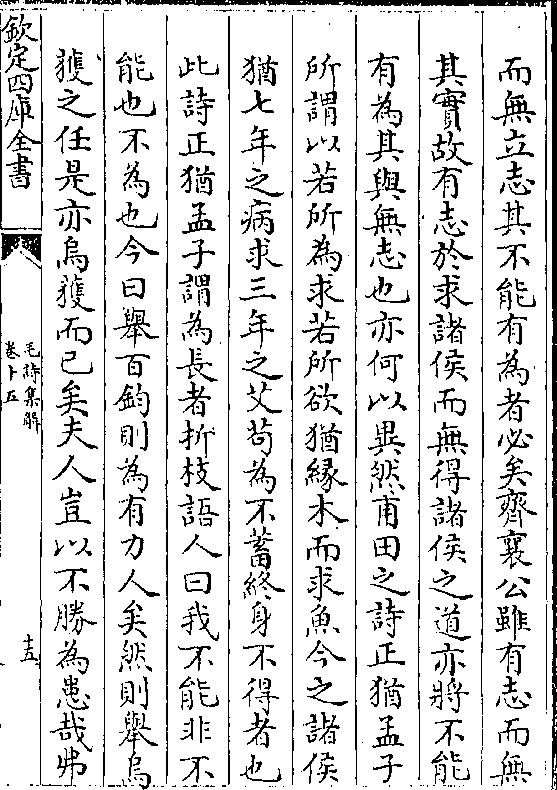 而無立志其不能有為者必矣齊襄公雖有志而無
其實故有志於求諸侯而無得諸侯之道亦將不能
有為其與無志也亦何以異然甫田之詩正猶孟子
所謂以若所為求若所欲猶緣木而求魚今之諸侯
猶七年之病求三年之艾苟為不蓄終身不得者也
此詩正猶孟子謂為長者折枝語人曰我不能非不
能也不為也今曰舉百鈞則為有力人矣然則舉烏
獲之任是亦烏獲而已矣夫人豈以不勝為患哉弗
欽定四庫全書
毛詩集解
卷十五
十五